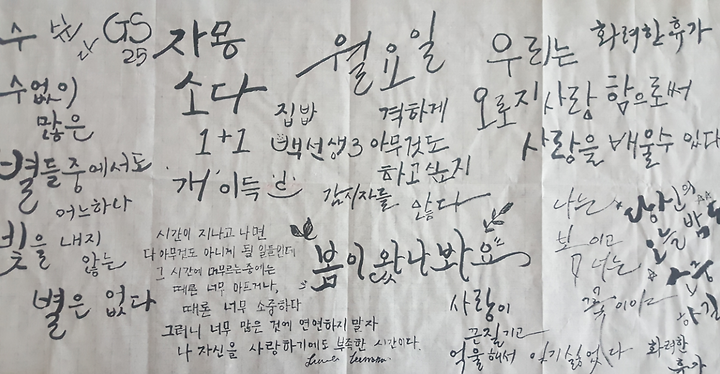 수
GS
25
수없이
많은
별들중에서도
어느하나
빛을 내지
않는
별은 없다
자몽
소다
1+1
개이득
월요일
집밥
백선생3
격하게
아무것도
하고싶지
않다
감시자들
우리는
오로지 사랑함으로써
사랑을 배울수 있다
화려한 휴가
시간이 지나고 나면
다 아무것도 아니게 될 일들인데
그 시간에 머무르는중에는
때론 너무 아프거나,
때론 너무 소중하다
그러니 너무 많은 것에 연연하지 말자
나 자신을 사랑하기에도 부족한 시간이다.
봄이 왔나봐요
사랑이
끈질기고
억울해서 있기싫었다
나는 당신의
봄이고
오늘밤
너는
꽃이야
화려한
휴가